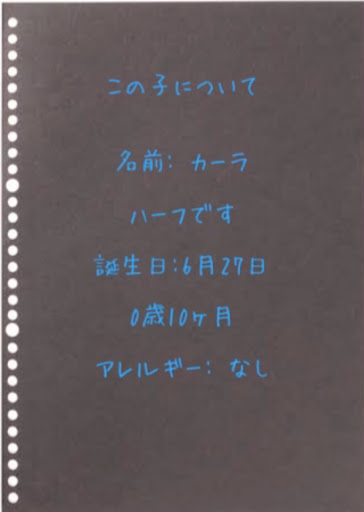 この子について
名前: カーラ
ハーフです
誕生日:6月27日
0歳10ヶ月
アレルギー: なし